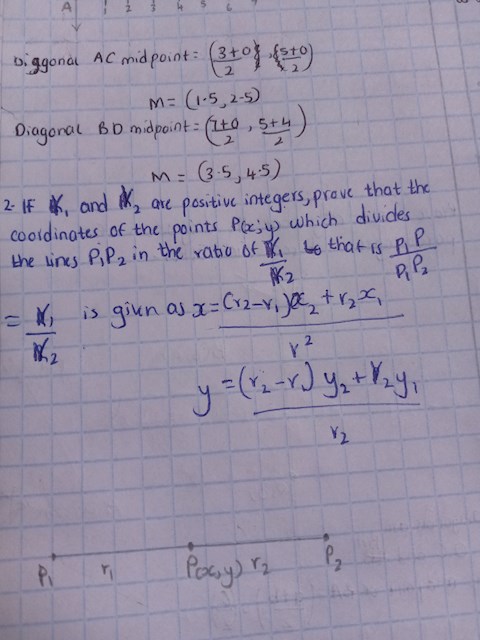 A 1 2 3 4 5 6 7
Diggonal AC midpoint = (3+0/2), (5+0/2)
M = (1.5, 2.5)
Diagonal BD midpoint = (7+0/2, 5+4/2)
M = (3.5, 4.5)
2- IF r1 and r2 are positive integers, prove that the
coordinates of the points P(x,y) which divides
the lines P1P2 in the ratio of r1/r2 that is P1P/P1P2
= r1/r2 is given as x = (r2-r1)x2 + r2x1 / r2
y = (r2-r1) y2 + r2y1 / r2
P1 r1 P(x,y) r2 P2